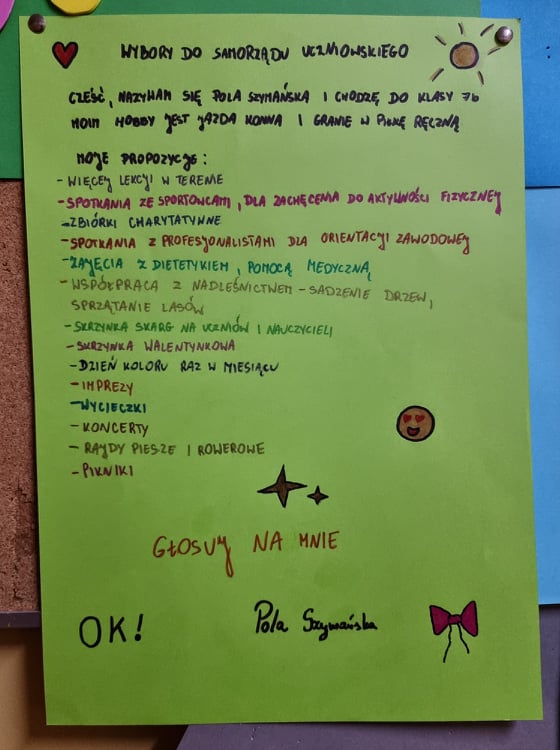 WYBORY DO SAMORZĄDU UCZNIOWSKIEGO
CZEŚĆ, NAZYWAM SIĘ POLA SZYMAŃSKA I CHODZĘ DO KLASY 7b
MOIM HOBBY JEST JAZDA KONNA I GRANIE W PIŁKĘ RĘCZNĄ
MOJE PROPOZYCJE:
- WIĘCEJ LEKCJI W TERENIE
- SPOTKANIA ZE SPORTOWCAMI, DLA ZACHĘCENIA DO AKTYWNOŚCI FIZYCZNEJ
- ZBIÓRKI CHARYTATYWNE
- SPOTKANIA Z PROFESJONALISTAMI DLA ORIENTACJI ZAWODOWEJ
- ZAJĘCIA Z DIETETYKIEM, POMOCĄ MEDYCZNĄ
- WSPÓŁPRACA Z NADLEŚNICTWEM - SADZENIE DRZEW,
SPRZĄTANIE LASÓW
- SKRZYNKA SKARG NA UCZNIÓW I NAUCZYCIELI
- SKRZYNKA WALENTYNKOWA
- DZIEŃ KOLORU RAZ W MIESIĄCU
- IMPREZY
- WYCIECZKI
- KONCERTY
- RAJDY PIESZE I ROWEROWE
- PIKNIKI
GŁOSUJ NA MNIE
OK! Pola Szymańska